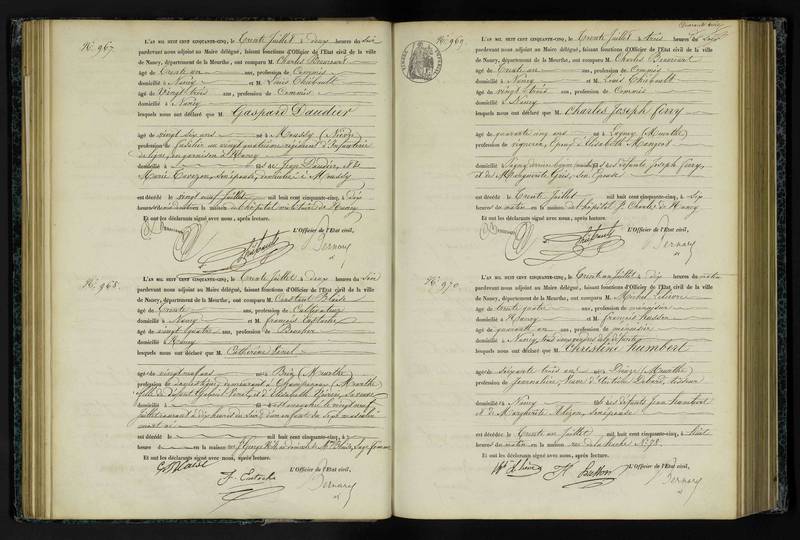 No. 967.
L'AN MIL HUIT CENT CINQUANTE-CINQ, le trente Juillet à deux heures du soir
pardevant nous adjoint au Maire délégué, faisant fonctions d'Officier de l'État civil de la ville
de Nancy, département de la Meurthe, ont comparu M. Charles
âgé de trente un ans, profession de Commis
domicilié à Nancy et M. Louis Thiébault
âgé de vingt trois ans, profession de Commis
domicilié à Nancy
lesquels nous ont déclaré que M. Gaspard Daudier
âgé de vingt six ans né à (Nièvre)
profession de fusilier au vingt quatrième régiment d'Infanterie
de ligne, en garnison à Nancy
domicilié à fils de Jean Daudier, et de
Marie son épouse, domiciliés à
est décédé le vingt neuf Juillet mil huit cent cinquante-cinq, à dix
heures du en la maison de l'hôpital militaire de Nancy
Et ont les déclarants signé avec nous, après lecture.
L'Officier de l'État civil,
Thiébault
Bernard
No. 968.
L'AN MIL HUIT CENT CINQUANTE-CINQ, le trente Juillet à deux heures du soir
pardevant nous adjoint au Maire délégué, faisant fonctions d'Officier de l'État civil de la ville
de Nancy, département de la Meurthe, ont comparu M. Constant Blaise
âgé de trente ans, profession de Cultivateur
domicilié à Nancy et M. François Eustache
âgé de vingt quatre ans, profession de
domicilié à Nancy
lesquels nous ont déclaré que M. Catherine
âgée de vingt neuf ans née à (Meurthe)
profession de demeurant à Champenoux (Meurthe)
fille de défunt Gabriel et d'Elisabeth sa veuve
domicilié à est accouchée le vingt neuf
Juillet courant à dix heures du soir d'un enfant du sexe masculin
mort né
est décédé le mil huit cent cinquante-cinq, à
heure en la maison rue St Georges au domicile de Mme Blaise, Sage femme
Et ont les déclarants signé avec nous, après lecture.
L'Officier de l'État civil,
Blaise
F. Eustache
Bernard
No. 969.
L'AN MIL HUIT CENT CINQUANTE-CINQ, le trente Juillet à trois heures du soir
pardevant nous adjoint au Maire délégué, faisant fonctions d'Officier de l'État civil de la ville
de Nancy, département de la Meurthe, ont comparu M. Charles
âgé de trente un ans, profession de Commis
domicilié à Nancy et M. Louis Thiébault
âgé de vingt trois ans, profession de Commis
domicilié à Nancy
lesquels nous ont déclaré que M. Charles Joseph Ferry
âgé de quarante cinq ans né à (Meurthe)
profession de vigneron, époux d'Elisabeth
domicilié à fils des défunts Joseph Ferry,
et de Marguerite son épouse
est décédé le trente Juillet mil huit cent cinquante-cinq, à six
heures du matin en la maison de l'hôpital St Charles de Nancy
Et ont les déclarants signé avec nous, après lecture.
L'Officier de l'État civil,
Thiébault
Bernard
No. 970.
L'AN MIL HUIT CENT CINQUANTE-CINQ, le trente un Juillet à dix heures du matin
pardevant nous adjoint au Maire délégué, faisant fonctions d'Officier de l'État civil de la ville
de Nancy, département de la Meurthe, ont comparu M. Michel
âgé de trente quatre ans, profession de menuisier
domicilié à Nancy et M. François Husson
âgé de quarante un ans, profession de menuisier
domicilié à Nancy, tous deux voisins de la défunte
lesquels nous ont déclaré que M. Christine Humbert
âgée de soixante trois ans née à Dieuze (Meurthe)
profession de journalière, veuve d'
domicilié à Nancy fille des défunts Jean Humbert
et de Marguerite son épouse
est décédée le trente un Juillet mil huit cent cinquante-cinq, à huit
heures du matin en la maison rue de la No. 78.
Et ont les déclarants signé avec nous, après lecture.
L'Officier de l'État civil,
Husson
Bernard